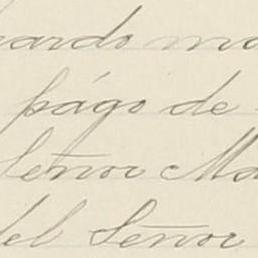 ardo ma
págo de
Señor Ma
del Señor